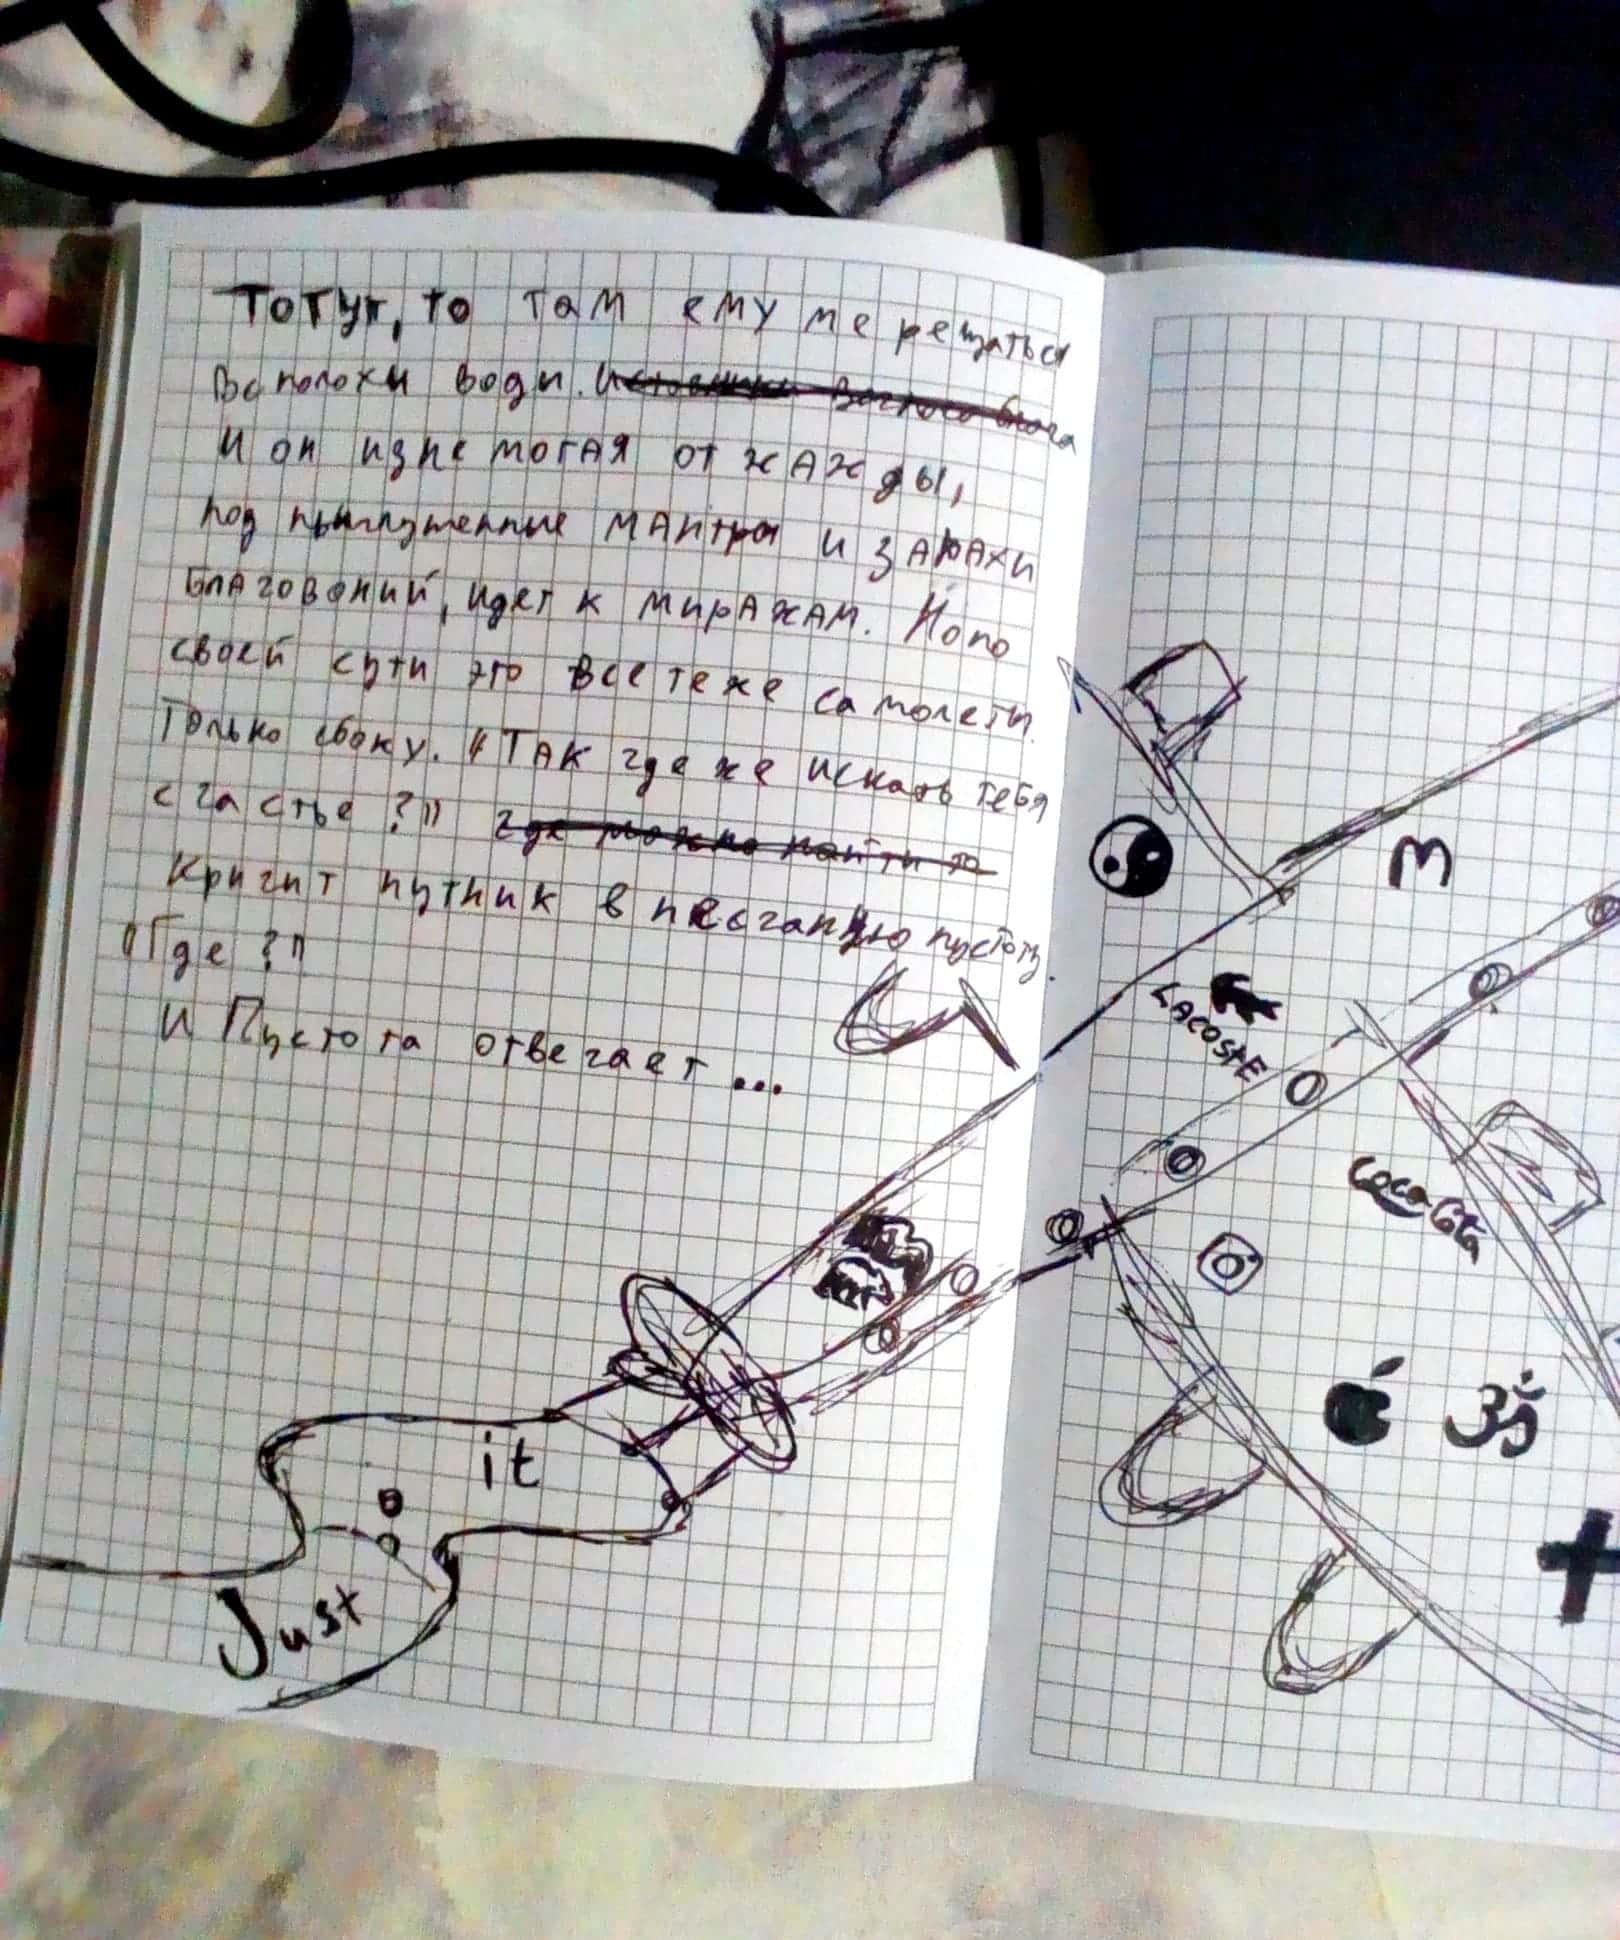 То тут, то там ему мерещаться
Всполохи воды.
И он изнемогая от жажды,
под мантры и запахи
благовоний, идет к миражам. Но по
своей сути это все те же самолеты.
Только сбоку. "Так где же искать тебя
счастье?" где можно найти то
Кричит путник в песчаную пустоту.
"Где?"
И Пустота отвечает...
LACOSTE
Coca-Cola
it
Just